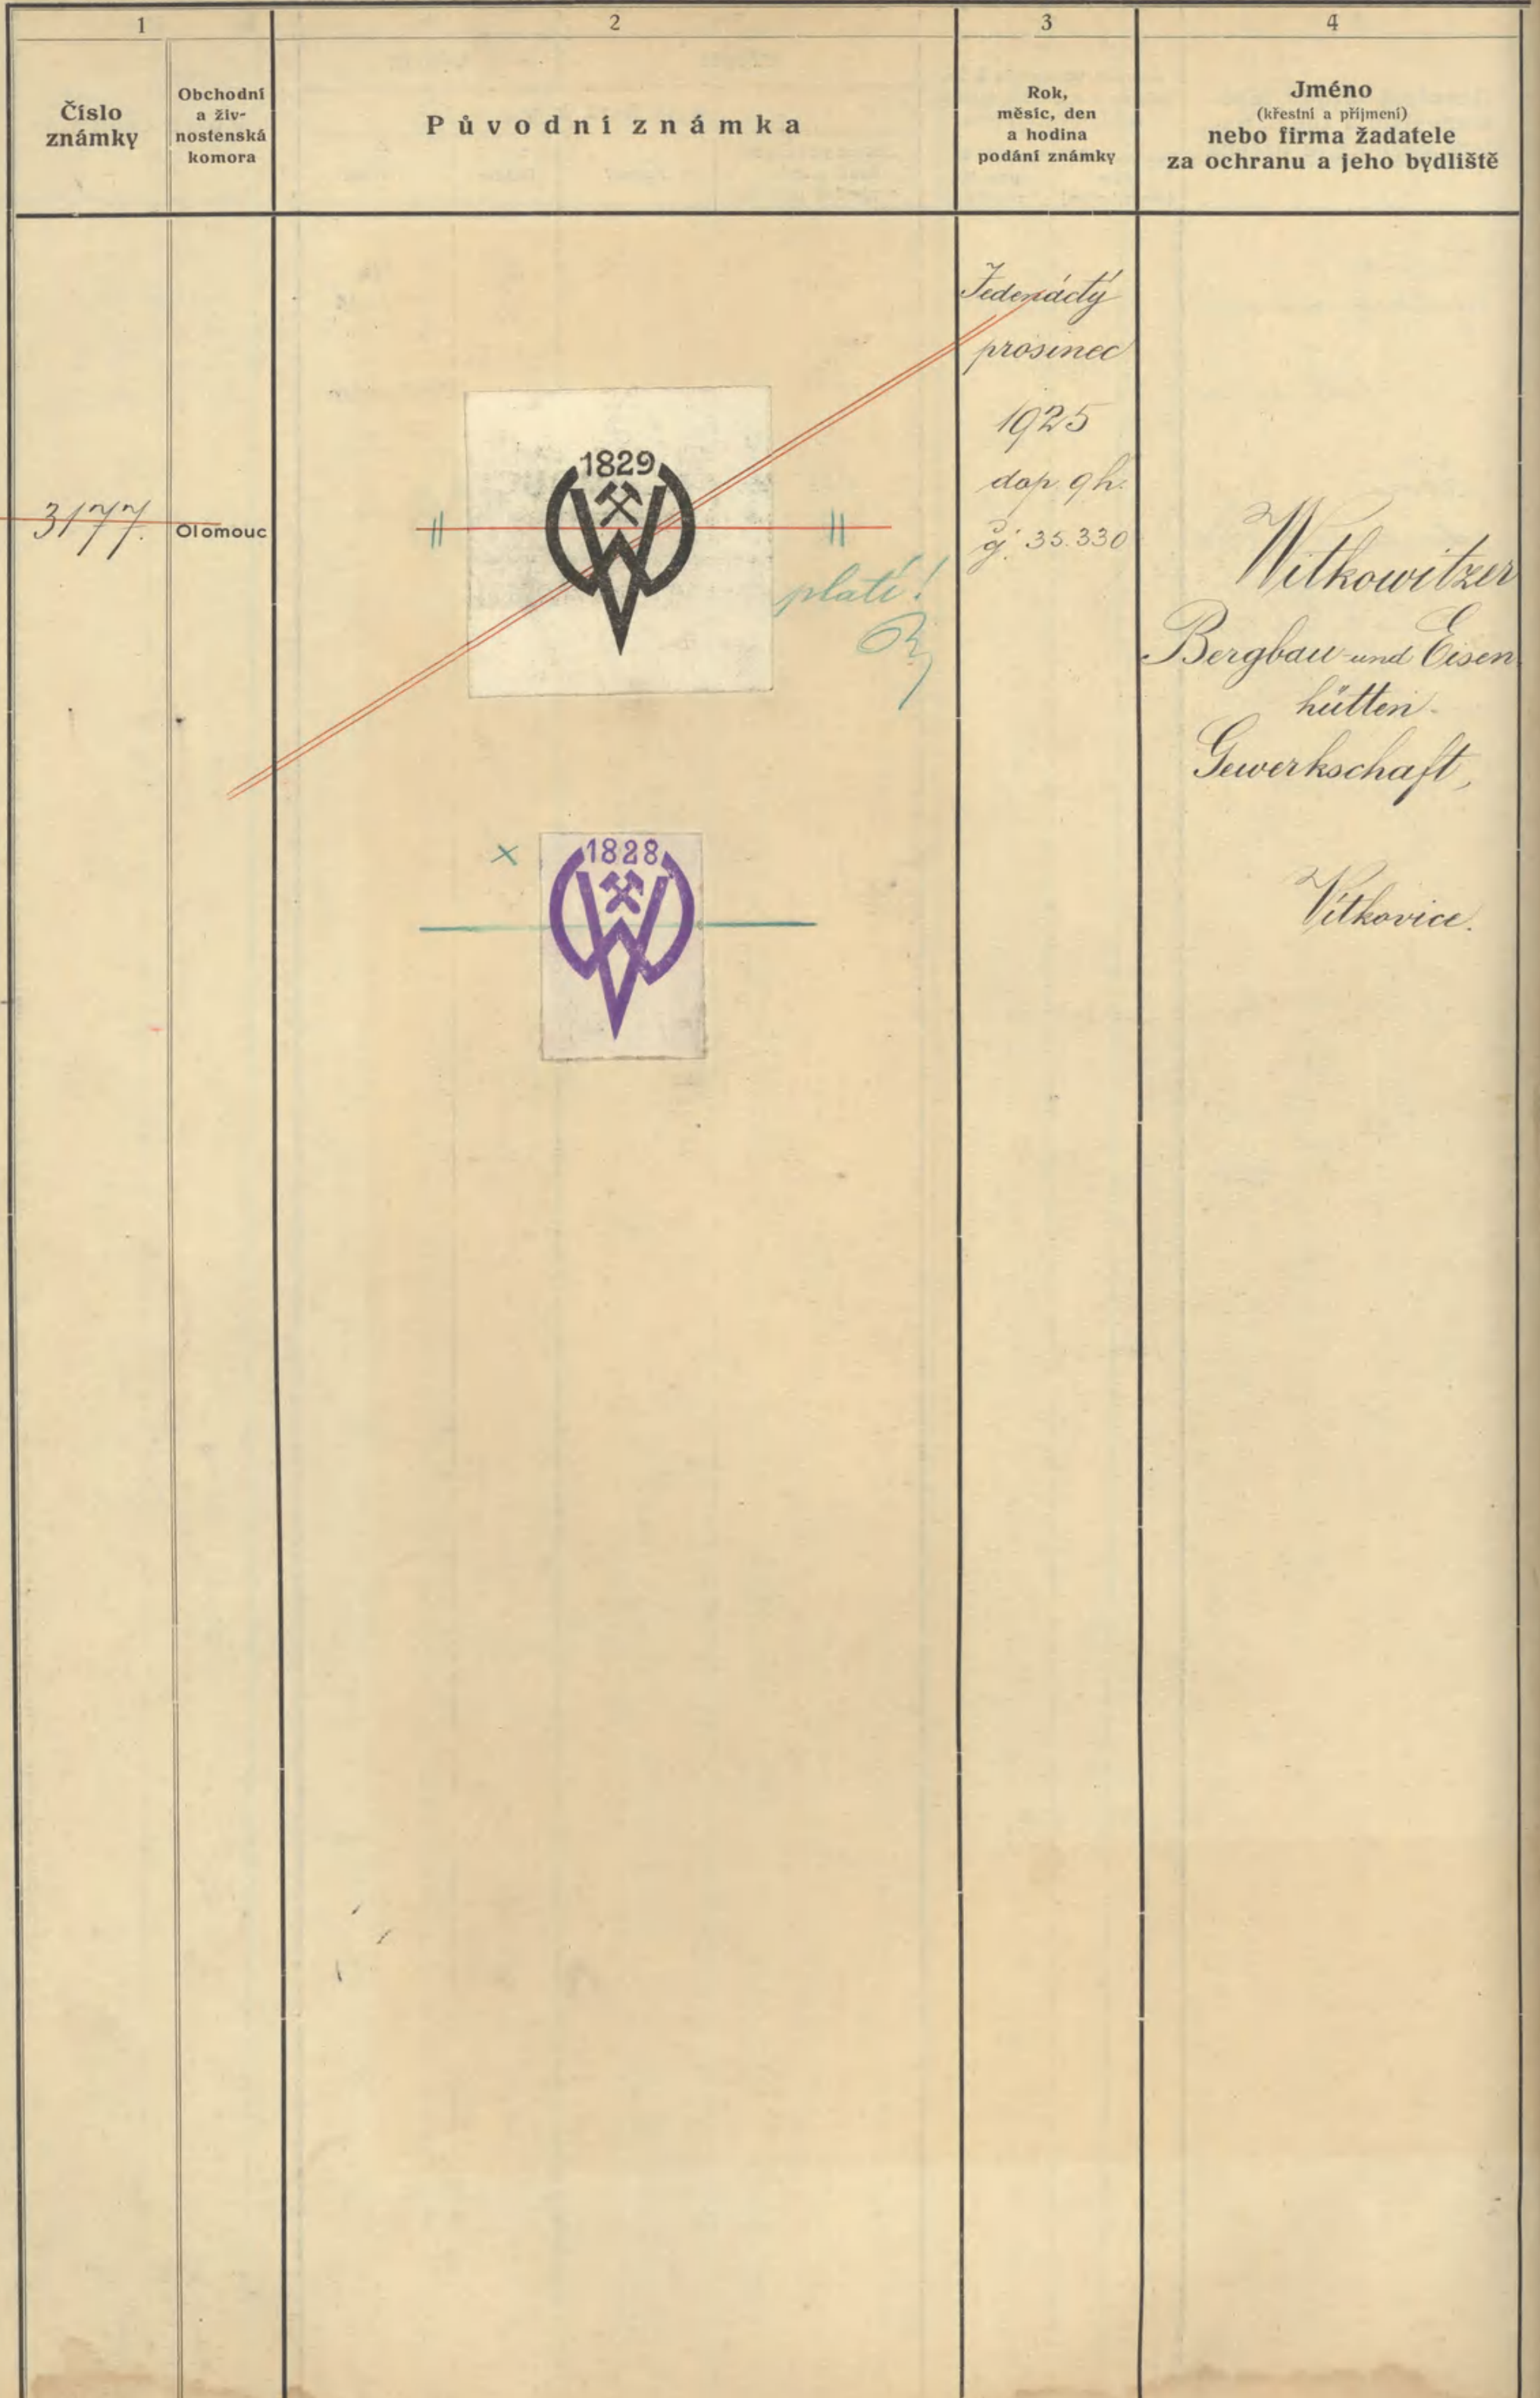 1
2
3
4
Číslo
známky
Obchodní
a živ-
nostenská
komora
Původní známka
Rok,
měsíc, den
a hodina
podání známky
Jméno
(křestní a příjmení)
nebo firma žadatele
za ochranu a jeho bydliště
3177.
Olomouc
1829
platí!
1828
Jedenáctý
prosinec
1925
dop. 9 h.
35.330
Witkowitzer
Bergbau- und Eisen
hütten-
Gewerkschaft,
Vítkovice.